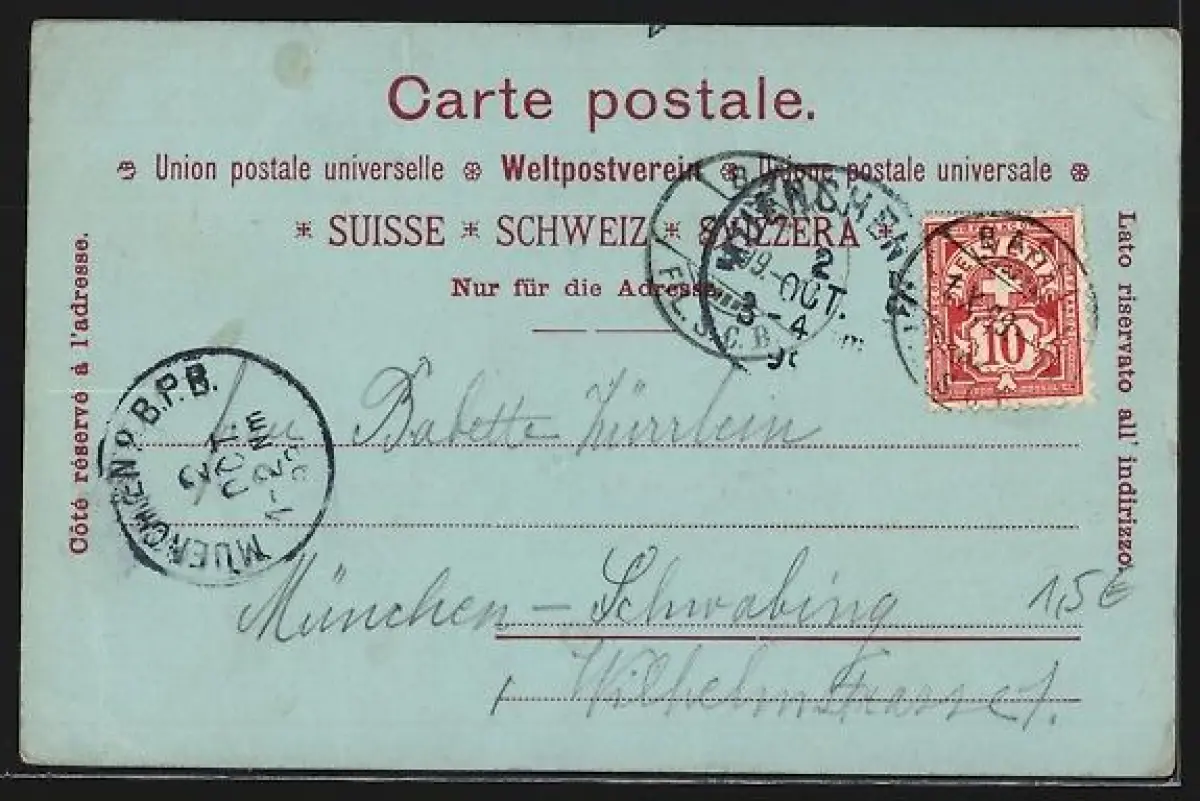 Carte postale.
Union postale universelle ❉ Weltpostverein ❉ Unione postale universale ❉
* SUISSE * SCHWEIZ * SVIZZERA *
Nur für die Adresse.
Côté réservé à l'adresse.
Lato riservato all' indirizzo.
HELVETIA
10
MUENCHEN
2
OCT.
3-4
MUENCHEN B.P.B.
2
OCT
Babette Zürrlein
München - Schwabing
Wilhelmstrasse 1.
1,5 €